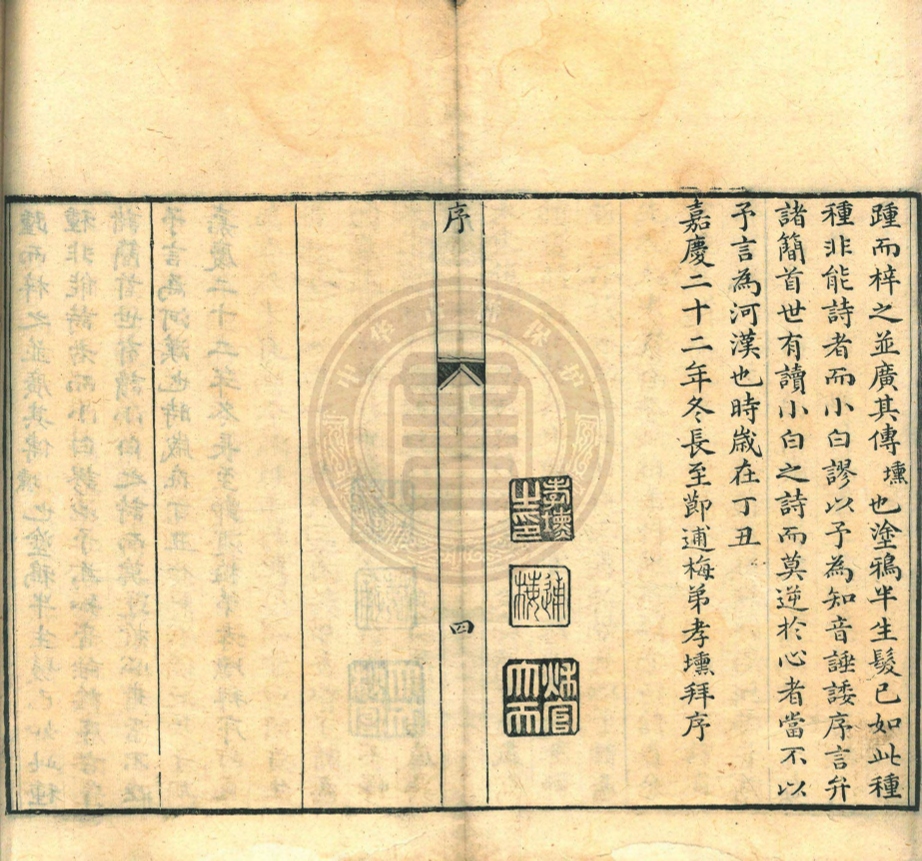 踵而梓之並廣其傳壎也塗鴉半生髮已如此種
種非能詩者而小白謬以予為知音諈諉序言弁
諸簡首世有讀小白之詩而莫逆於心者當不以
予言為河漢也時歲在丁丑
嘉慶二十二年冬長至節逋梅弟孝壎拜序
孝壎之印
逋梅
序
四